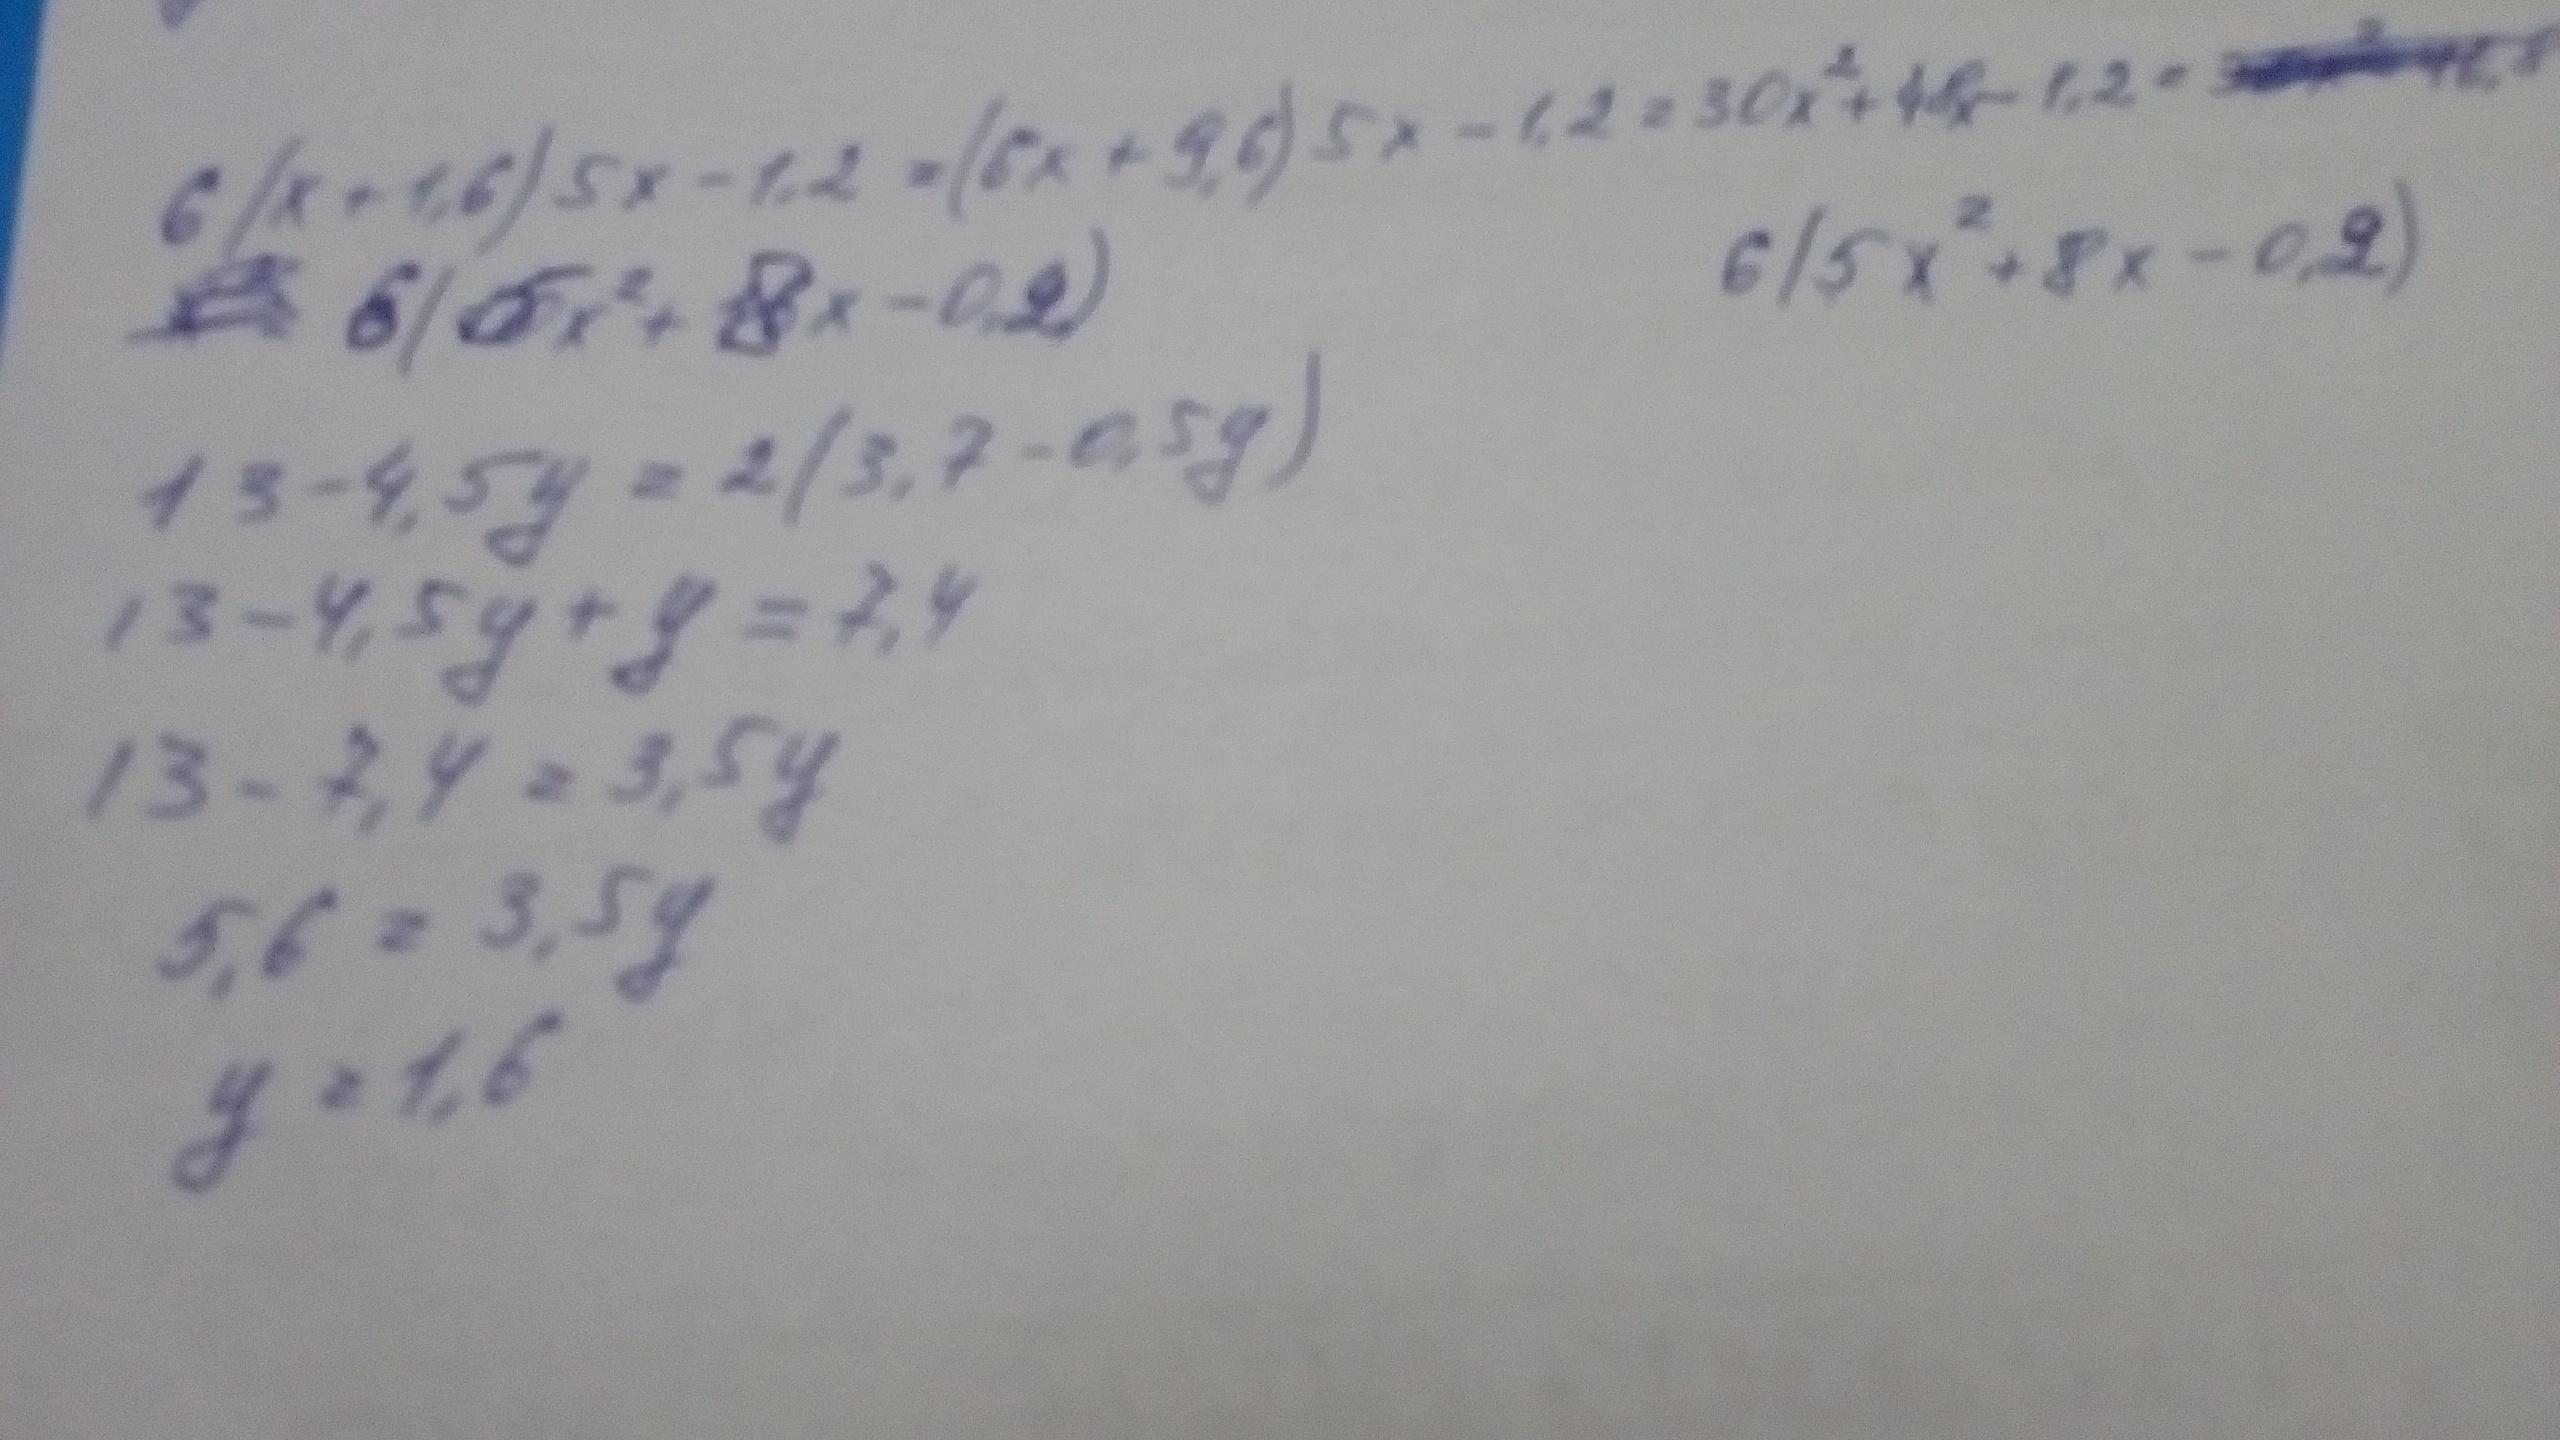 6(x+1,6)5x-1,2=(6x+9,6)5x-1,2=30x²+48x-1,2=
6(5x²+8x-0,2)
6(5x²+8x-0,2)
13-4,5y=2(3,7-0,5y)
13-4,5y+y=7,4
13-7,4=3,5y
5,6=3,5y
y=1,6